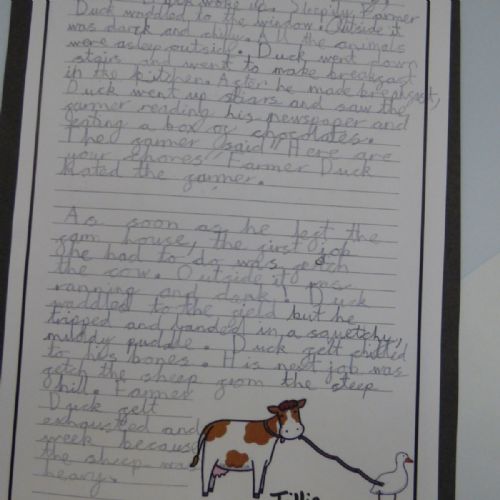 Duck woke up. Sleepily, Farmer
Duck waddled to the window. Outside it
was dark and chilly. All the animals
were asleep outside. Duck went down
stairs and went to make breakfast
in the kitchen. After he made breakfast,
Duck went up stiars and saw the
farmer reading his newspaper and
eating a box of chocolates.
The farmer said "Here are
your chores" Farmer Duck
hated the farmer.
As soon as he left the
farm house, the first job
he had to do was fetch
the cow. Outside it was
ranning and dark. Duck
waddled to the field but he
tripped and landed in a squetchy,
muddy puddle. Duck felt chilled
to his bones. His next job was
fetch the sheep from the steep
hill. Farmer
Duck felt
exhausted and
week because
the sheep was
heavy.
Tillie